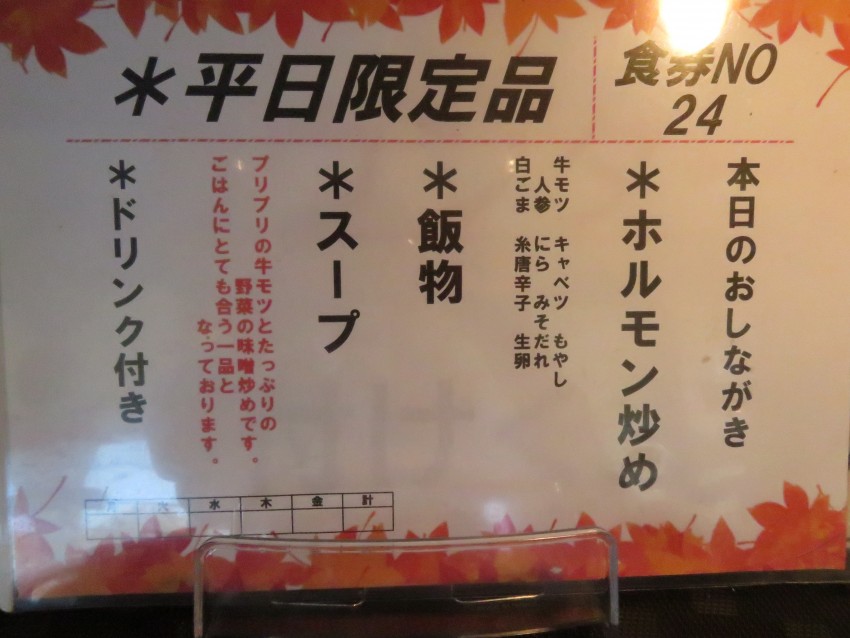 *平日限定品
食券NO
24
本日のおしながき
*ホルモン炒め
牛モツ キャベツ もやし
人参 にら みそだれ
白ごま 糸唐辛子 生卵
*飯物
*スープ
プリプリの牛モツとたっぷりの
野菜の味噌炒めです。
ごはんにとても合う一品と
なっております。
*ドリンク付き
月 火 水 木 金 計